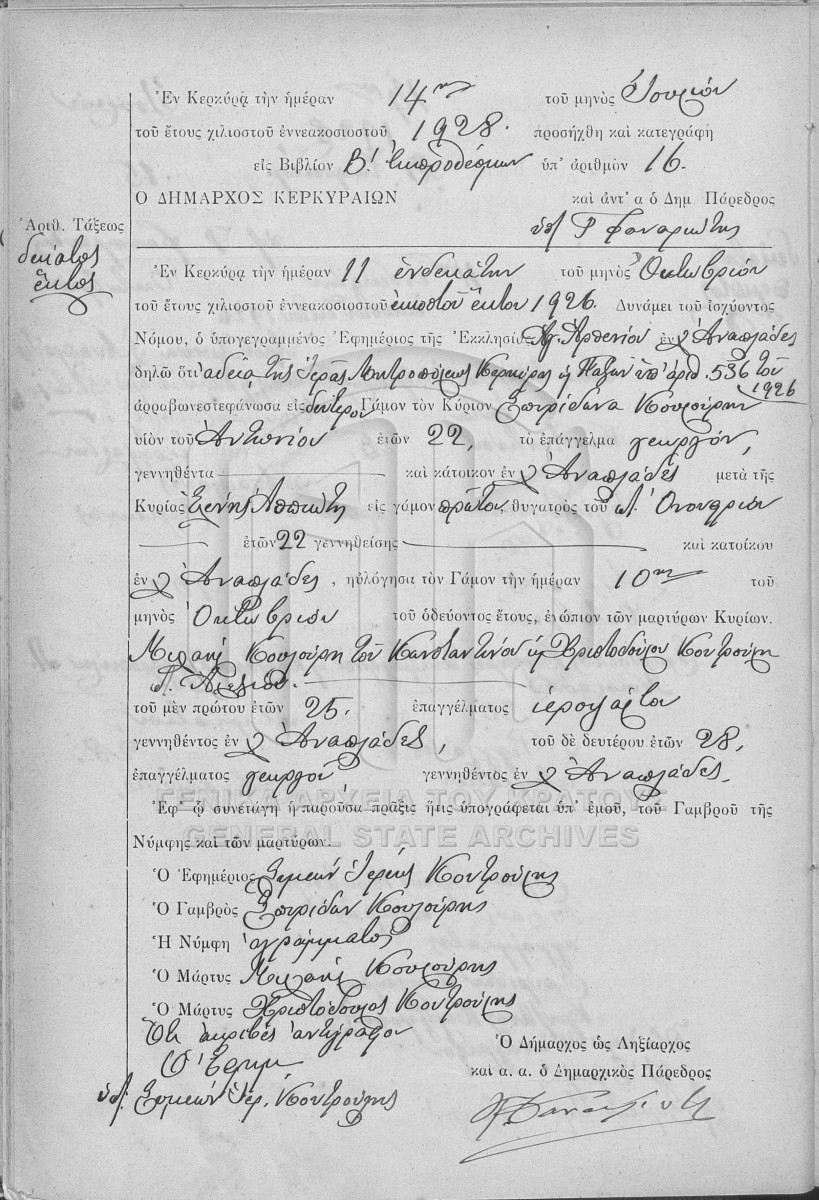 Ἐν Κερκύρᾳ τὴν ἡμέραν 14ην τοῦ μηνὸς Ἰουνίου
τοῦ ἔτους χιλιοστοῦ ἐννεακοσιοστοῦ 1928. προσήχθη καὶ κατεγράφη
εἰς Βιβλίον Β! Ἐκπροθέσμων ὑπ' ἀριθμὸν 16.
Ο ΔΗΜΑΡΧΟΣ ΚΕΡΚΥΡΑΙΩΝ καὶ ἀντ' α ὁ Δημ Πάρεδρος
Φαναριώτης
Ἀριθ. Τάξεως
δέκατος
ἕκτος
Ἐν Κερκύρᾳ τὴν ἡμέραν 11 ἑνδεκάτην τοῦ μηνὸς Ὀκτωβρίου
τοῦ ἔτους χιλιοστοῦ ἐννεακοσιοστοῦ εἰκοστοῦ ἕκτου 1926. Δυνάμει τοῦ ἰσχύοντος
Νόμου, ὁ ὑπογεγραμμένος Ἐφημέριος τῆς Ἐκκλησίας Ἁγ. Ἀρσενίου ἐν Ἀναπλάδες
δηλῶ ὅτι ἀδείᾳ τῆς Ἱερᾶς Μητροπόλεως Κερκύρας ἢ Παξῶν ὑπ' ἀριθ. 536 τοῦ
1926
ἀρραβωνεστεφάνωσα εἰς δεύτερον Γάμον τὸν Κύριον Σπυρίδωνα Κουλούρην
υἱὸν τοῦ Ἀντωνίου ἐτῶν 22, τὸ ἐπάγγελμα γεωργόν,
γεννηθέντα καὶ κάτοικον ἐν Ἀναπλάδες μετὰ τῆς
Κυρίας Ἑλένης εἰς γάμον πρῶτον θυγατρὸς τοῦ Π. Ὀνουφρίου
ἐτῶν 22 γεννηθείσης καὶ κατοίκου
ἐν Ἀναπλάδες, ηὐλόγησα τὸν Γάμον τὴν ἡμέραν 10ην τοῦ
μηνὸς Ὀκτωβρίου τοῦ ὁδεύοντος ἔτους, ἐνώπιον τῶν μαρτύρων Κυρίων.
Μιχαὴλ Κουλούρη τοῦ Κωνσταντίνου Χριστοδούλου Κοντρούλη
Π. Ἀλεξίου.
τοῦ μὲν πρώτου ἐτῶν 25. ἐπαγγέλματος ἱεροψάλτου
γεννηθέντος ἐν Ἀναπλάδες, τοῦ δὲ δευτέρου ἐτῶν 28,
ἐπαγγέλματος γεωργοῦ γεννηθέντος ἐν Ἀναπλάδες.
ΓΕΝΙΚΑ ΑΡΧΕΙΑ ΤΟΥ ΚΡΑΤΟΥΣ
Ἐφ' ᾧ συνετάγη ἡ παροῦσα πρᾶξις ἥτις ὑπογράφεται ὑπ' ἐμοῦ, τοῦ Γαμβροῦ τῆς
GENERAL STATE ARCHIVES
Νύμφης καὶ τῶν μαρτύρων.
Ὁ Ἐφημέριος Συμεὼν Ἱερεὺς Κοντρούλης
Ὁ Γαμβρὸς Σπυρίδων Κουλούρης
Ἡ Νύμφη ἀγράμματος
Ὁ Μάρτυς Μιχαὴλ Κουλούρης
Ὁ Μάρτυς Χριστόδουλος Κοντρούλης
Ὅτι ἀκριβὲς ἀντίγραφον
Ὁ Ἐφημ.
Ὁ Δήμαρχος ὡς Ληξίαρχος
καὶ α. α. ὁ Δημαρχικὸς Πάρεδρος
Συμεὼν Ἱερ. Κοντρούλης